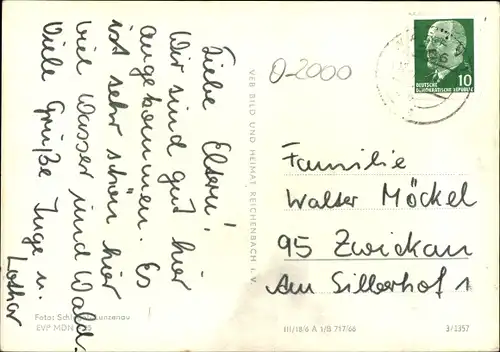 Liebe Eltern!
Wir sind gut hier
angekommen. Es
ist sehr schön hier
viel Wasser und Wald.
Viele Grüße Inge u.
Lothar
O-2000
10
DEUTSCHE
DEMOKRATISCHE REPUBLIK
Familie
Walter Möckel
95 Zwickau
Am Silberhof 1
VEB BILD UND HEIMAT REICHENBACH i. V.
Foto: Lunzenau
EVP MDN
III/18/6 A 1/B 717/66
3/1357